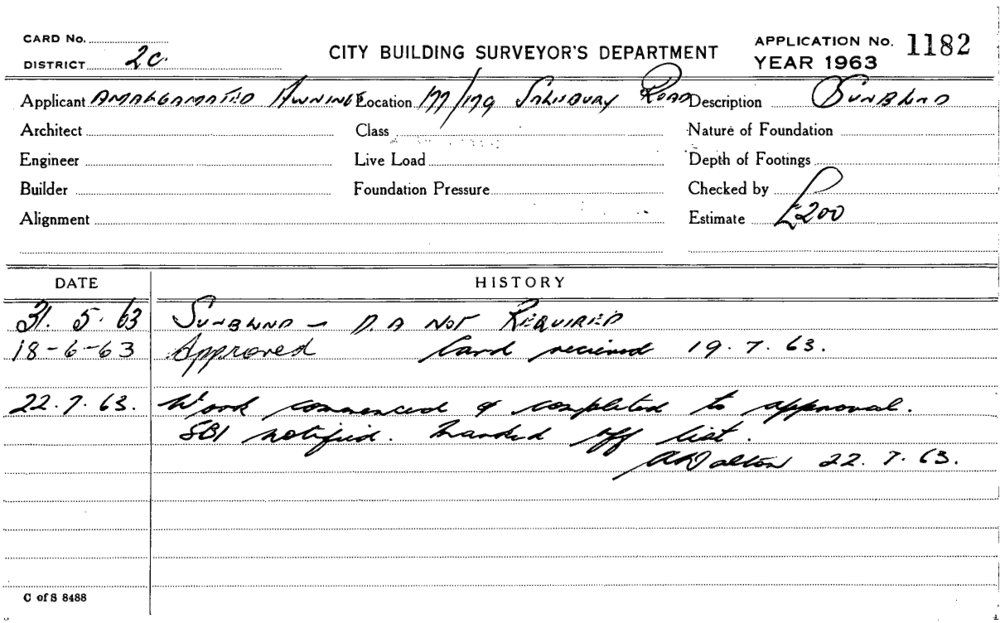 CARD No.
DISTRICT 2C.
CITY BUILDING SURVEYOR'S DEPARTMENT
APPLICATION No. 1182
YEAR 1963
Applicant AMALGAMATED AWNINGS Location 177/179 SALISBURY ROAD Description SUNBLIND
Architect Class Nature of Foundation
Engineer Live Load Depth of Footings
Builder Foundation Pressure Checked by
Alignment Estimate £200
DATE HISTORY
31. 5. 63 SUNBLIND - D.A NOT REQUIRED
18-6-63 Approved Card recieved 19.7.63.
22.7.63. Work commenced & completed to approval.
SBI notified. Marked off list.
A Dalton 22.7.63.
C of S 8488